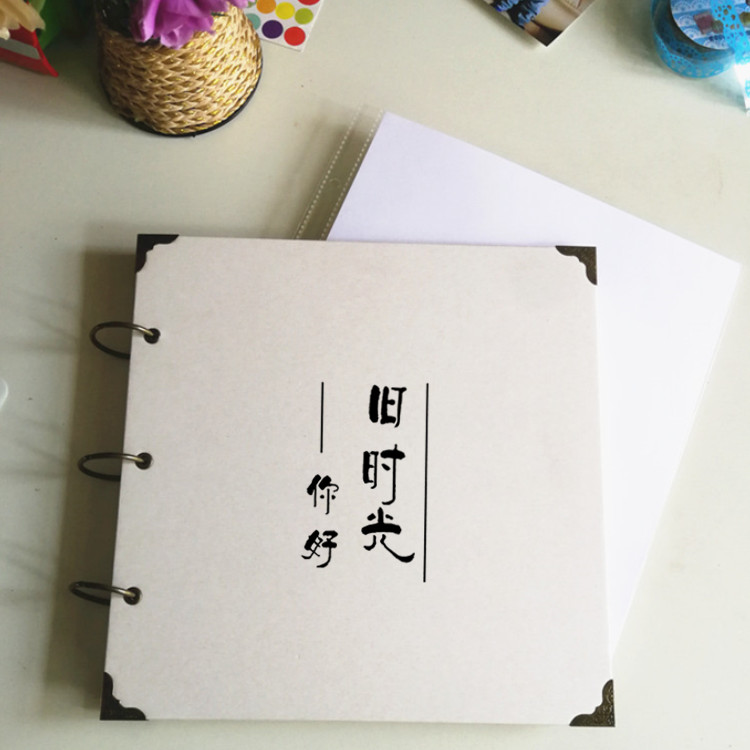 旧时光
你好